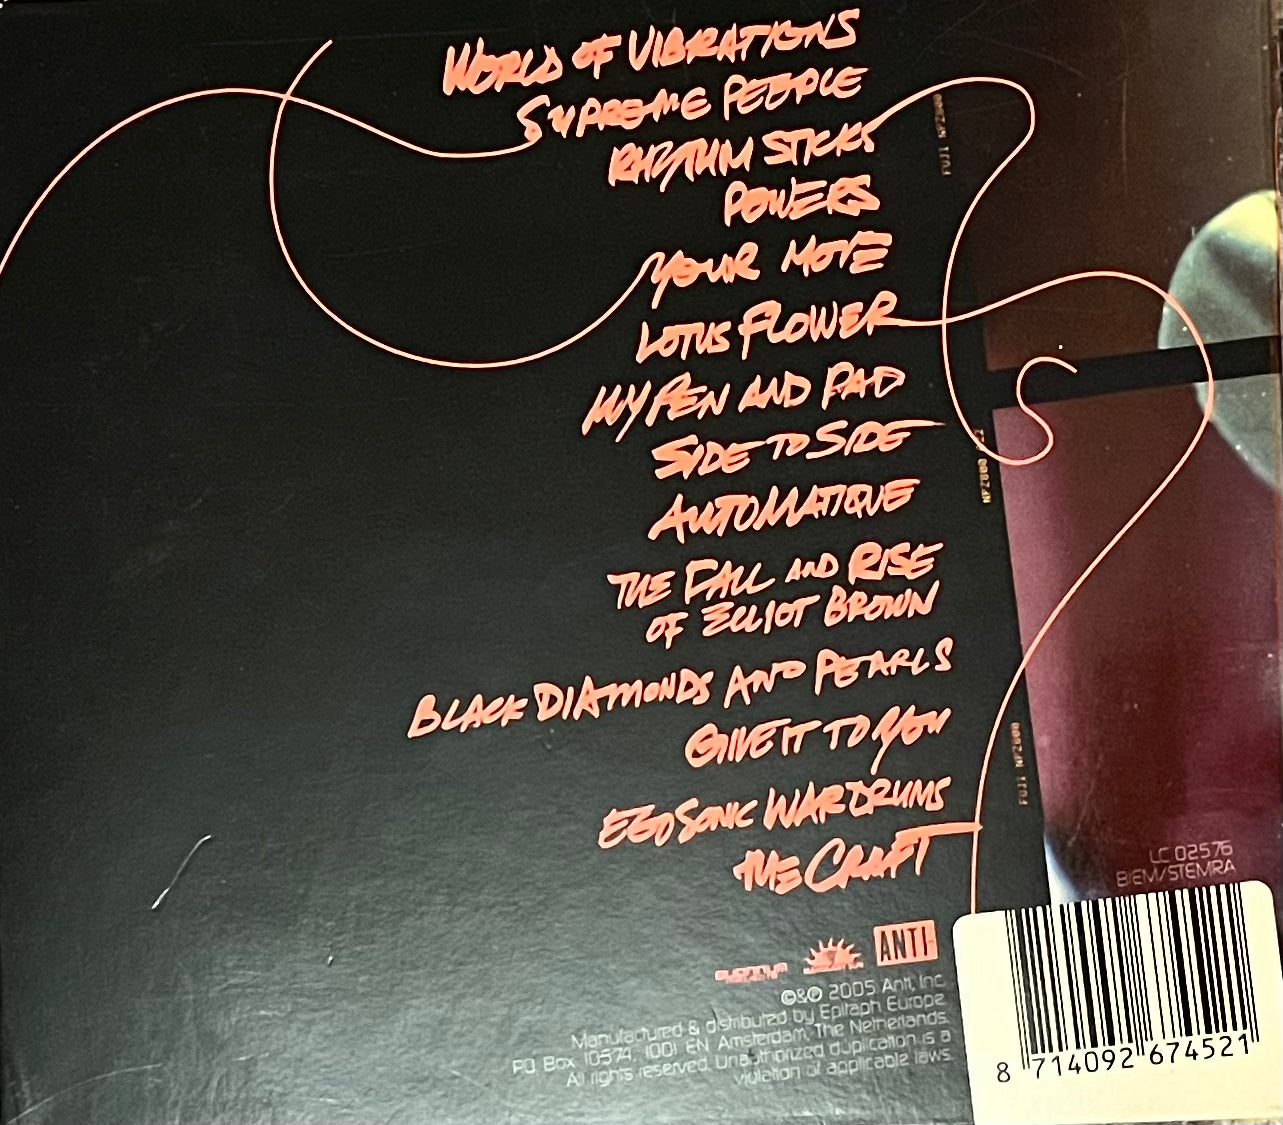 WORLD OF VIBRATIONS
SUPREME PEOPLE
RHYTHM STICKS
POWERS
YOUR MOVE
LOTUS FLOWER
MY PEN AND PAD
SIDE TO SIDE
AUTOMATIQUE
THE FALL AND RISE
OF ELLIOT BROWN
BLACK DIAMONDS AND PEARLS
GIVE IT TO YOU
EGO SONIC WAR DRUMS
THE CRAFT
ANTI-
©&℗ 2005 Anti, Inc.
Manufactured & distributed by Epitaph Europe
PO Box 10574, 1001 EN Amsterdam, The Netherlands.
All rights reserved. Unauthorized duplication is a
violation of applicable laws.
LC 02576
BIEM/STEMRA
8 714092 674521
FUJI NP200R